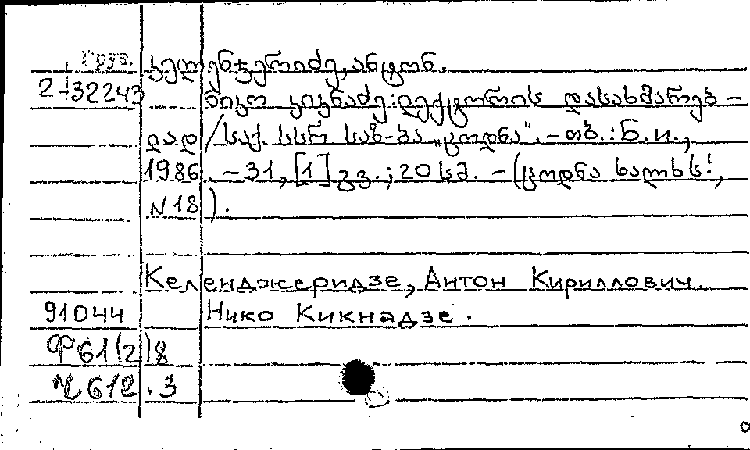 Груз. კელენჯერიძე, ანტონ.
2-32243 ნიკო კიკნაძე: ლექტორის დასახმარებ-
ლად / საქ. სსრ საზ-ბა „ცოდნა“. – თბ. : Б.и.,
1986. – 31, [1] გვ. ; 20 სმ. – (ცოდნა ხალხს!,
N 18).
Келенджеридзе, Антон Кириллович.
91044 Нико Кикнадзе.
Ф61(2)8
Ч612.3